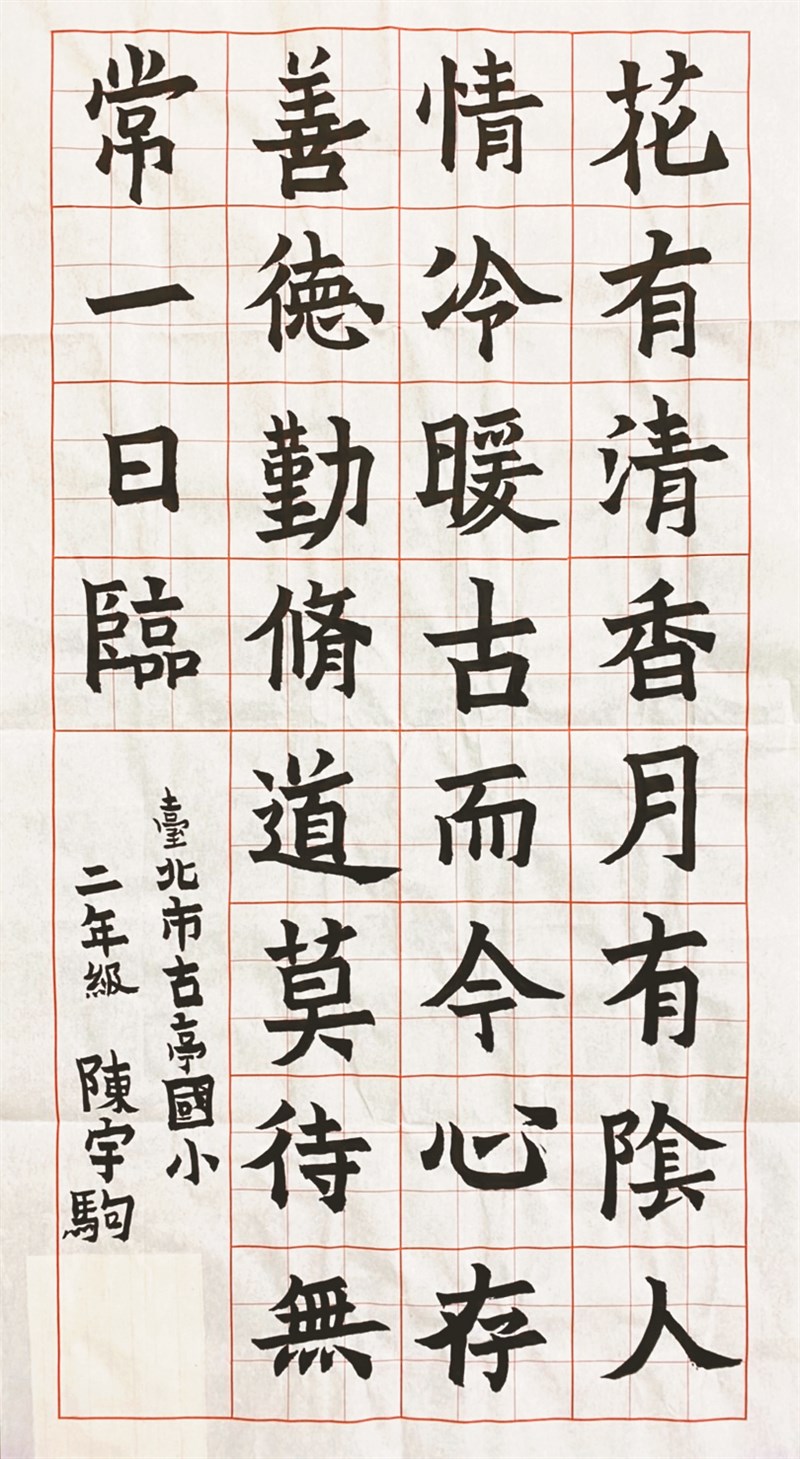 花有清香月有陰人
情冷暖古而今心存
善德勤脩道莫待無
常一日臨
臺北市古亭國小
二年級 陳宇駒